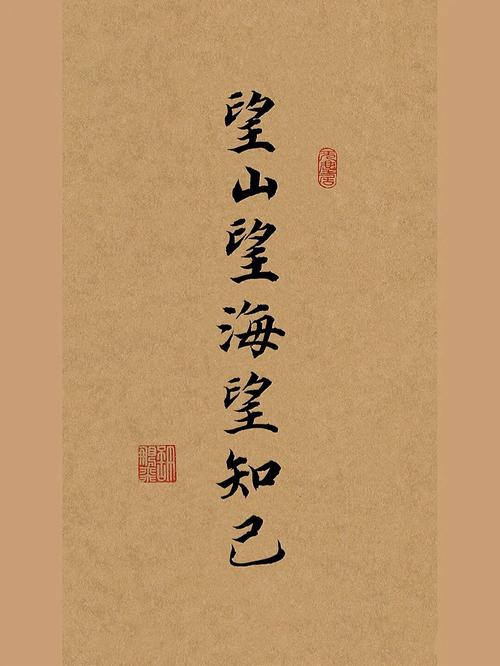 望山望海望知己